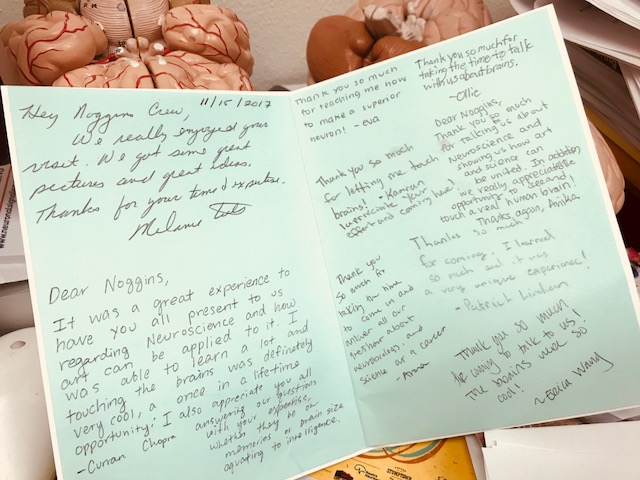 11/15/2017
Hey Noggins Crew,
We really enjoyed your
visit. We got some great
pictures and great ideas.
Thanks for your time & expertise.
Melanie
Dear Noggins,
It was a great experience to
have you all present to us
regarding Neuroscience and how
art can be applied to it. I
was able to learn a lot and
touching the brains was definitely
very cool, a once in a lifetime
opportunity. I also appreciate you all
answering our questions
with your expertise,
whether they be on
memories or brain size
equating to intelligence.
-Curran Chopra
Thank you so much
for teaching me how
to make a superior
neuron! - eva
Thank you so much for
taking the time to talk
with us about brains.
-Ollie
Thank you so much
for letting me touch
brains! - Kamran
I appreciate your
effort and coming here!
Dear Noggins,
Thank you so much
for talking to us about
Neuroscience and
showing us how art
and science can
be united. In addition,
we really appreciate the
opportunity to see and
touch a real human brain!
Thanks again, Anika
Thanks so much
for coming, I learned
so much and it was
a very unique experience!
- Patrick
Thank you
so much for
taking the time
to come in and
answer all our
questions about
neurobiology and
science as a career
- Anna
Thank you so much
for coming to talk to us!
The brains were so
cool!
~ Wang